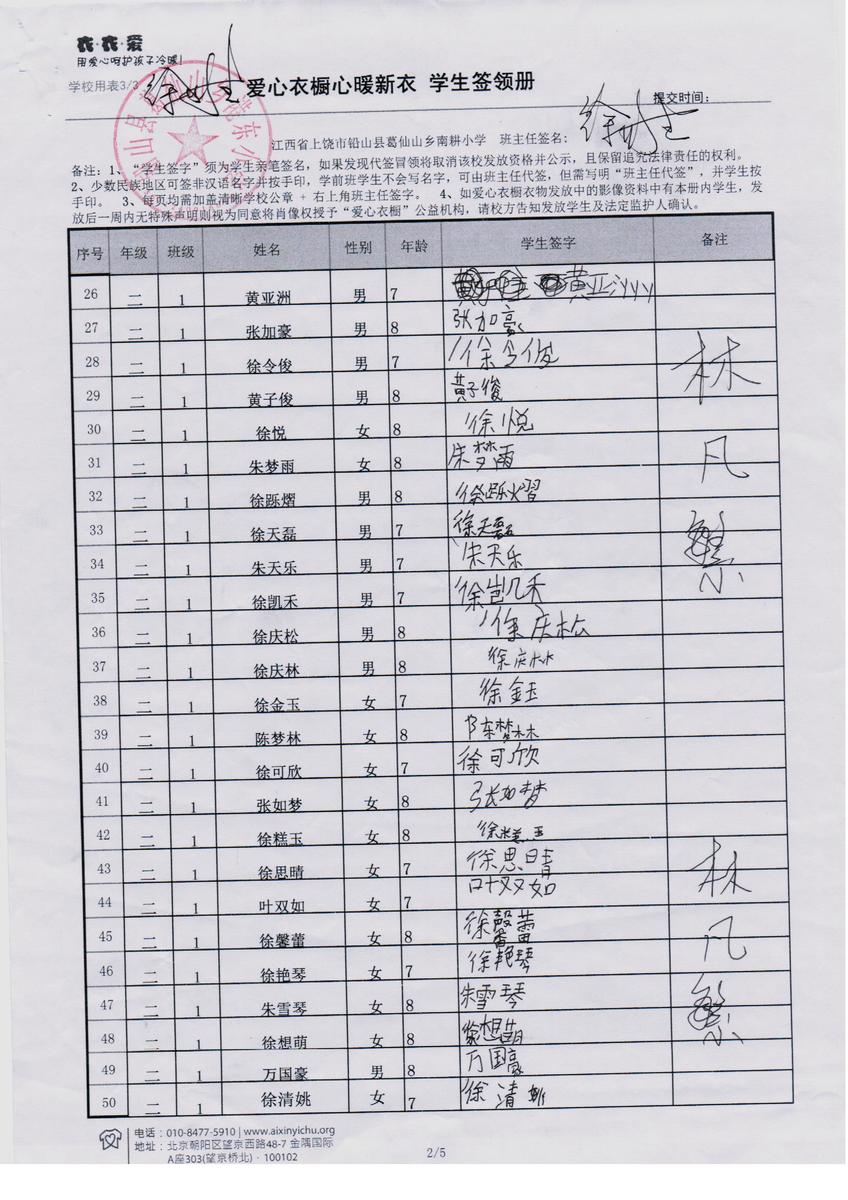 衣·衣·爱
用爱心呵护孩子冷暖!
学校用表3/3
爱心衣橱心暖新衣 学生签领册
提交时间:
江西省上饶市铅山县葛仙山乡南耕小学 班主任签名:
备注:1、“学生签字”须为学生亲笔签名,如果发现代签冒领将取消该校发放资格并公示,且保留追究法律责任的权利。
2、少数民族地区可签非汉语名字并按手印,学前班学生不会写名字,可由班主任代签,但需写明“班主任代签”,并学生按
手印。 3、每页均需加盖清晰学校公章 + 右上角班主任签字。 4、如爱心衣橱衣物发放中的影像资料中有本册内学生,发
放后一周内无特殊声明则视为同意将肖像权授予“爱心衣橱”公益机构,请校方告知发放学生及法定监护人确认。
序号 年级 班级 姓名 性别 年龄 学生签字 备注
26 二 1 黄亚洲 男 7 黄亚洲
27 二 1 张加豪 男 8 张加豪
28 二 1 徐令俊 男 7 徐令俊 林
29 二 1 黄子俊 男 8 黄子俊
30 二 1 徐悦 女 8 徐悦
31 二 1 朱梦雨 女 8 朱梦雨 凡
32 二 1 徐跞熠 男 8 徐跞熠
33 二 1 徐天磊 男 7 徐天磊
34 二 1 朱天乐 男 7 朱天乐
35 二 1 徐凯禾 男 7 徐凯禾
36 二 1 徐庆松 男 8 徐庆松
37 二 1 徐庆林 男 8 徐庆林
38 二 1 徐金玉 女 7 徐金玉
39 二 1 陈梦林 女 8 陈梦林
40 二 1 徐可欣 女 7 徐可欣
41 二 1 张如梦 女 8 张如梦
42 二 1 徐糕玉 女 8 徐糕玉
43 二 1 徐思晴 女 7 徐思晴 林
44 二 1 叶双如 女 7 叶双如
45 二 1 徐馨蕾 女 8 徐馨蕾 凡
46 二 1 徐艳琴 女 7 徐艳琴
47 二 1 朱雪琴 女 8 朱雪琴
48 二 1 徐想萌 女 8 徐想萌
49 二 1 万国豪 男 8 万国豪
50 二 1 徐清姚 女 7 徐清
电话:010-8477-5910 | www.aixinyichu.org
地址:北京朝阳区望京西路48-7 金隅国际
A座303(望京桥北)·100102
2/5